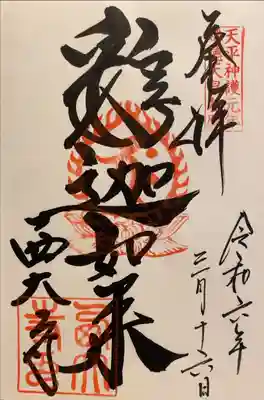 奉拝
天平神護元年
令和六年
三月十六日
釈迦如来
西大寺